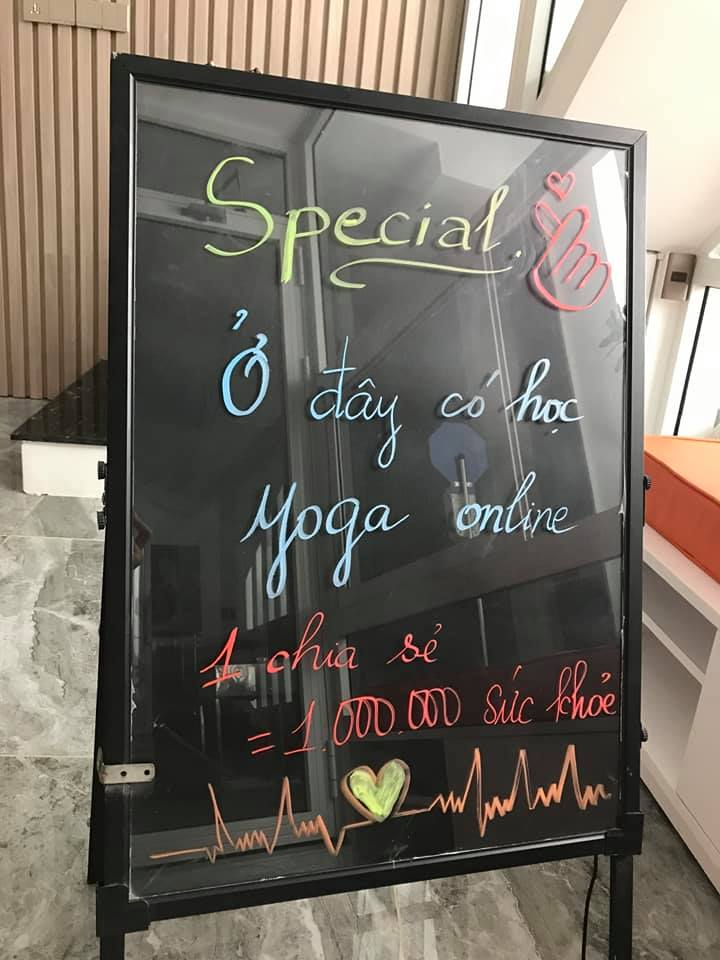 Special.
Ở đây có học
yoga online
1 chia sẻ
= 1.000.000 sức khỏe